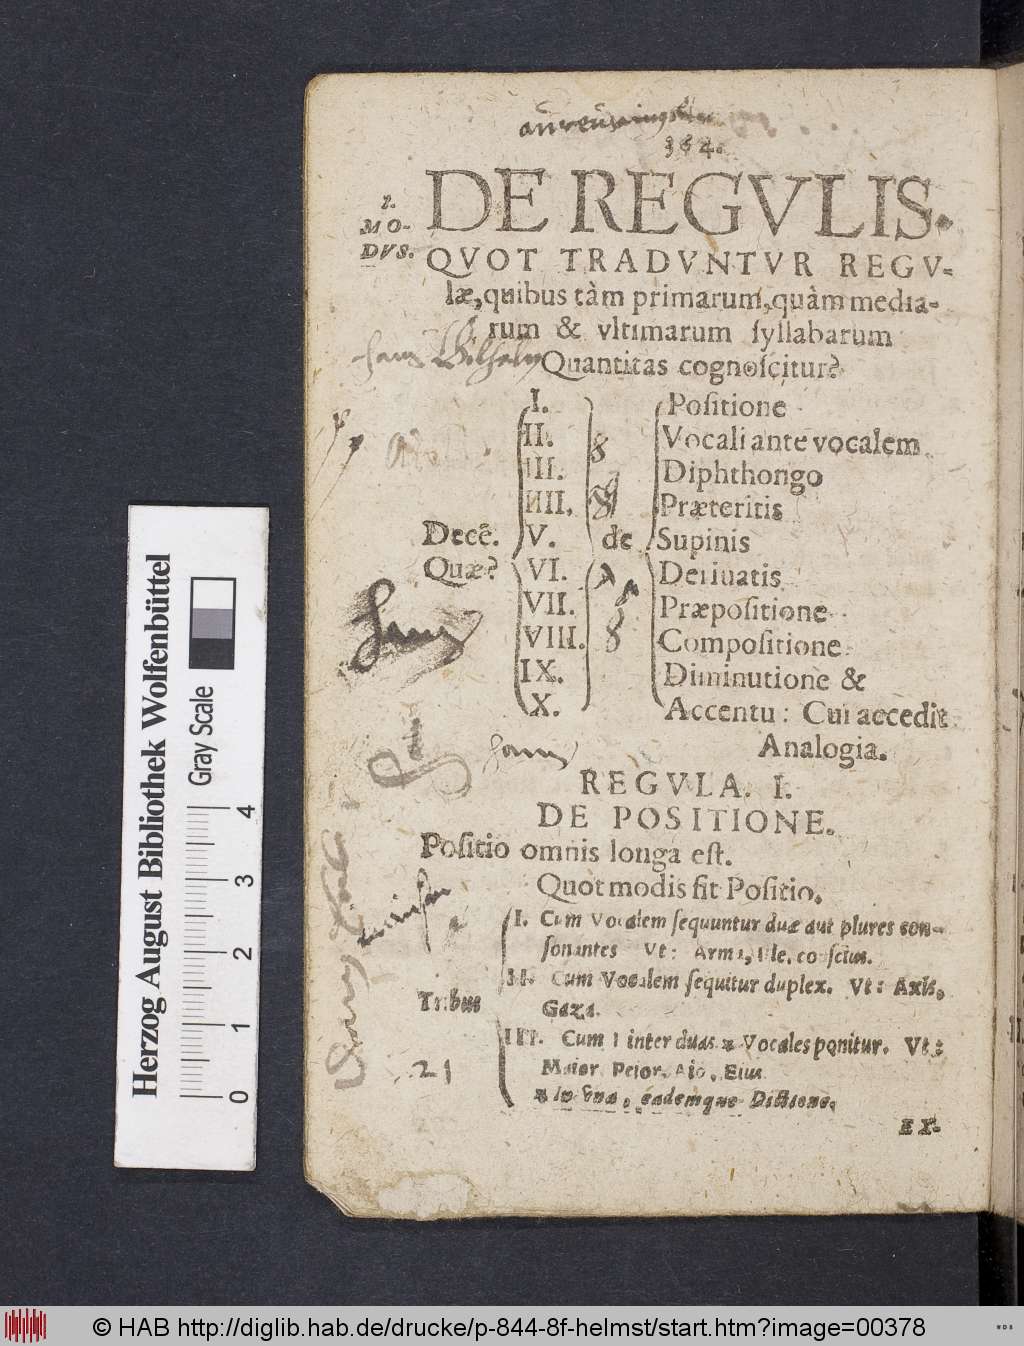 364.
DE REGVLIS.
I.
MO-
DVS.
QVOT TRADVNTVR REGV-
læ, quibus tàm primarum, quàm media-
rum & vltimarum ſyllabarum
Quantitas cognoſcitur?
hans Wilhelm
I. Poſitione
II. Vocali ante vocalem
III. Diphthongo
IIII. Præteritis
Decē. V. de Supinis
Quæ? VI. Deriuatis
VII. Præpoſitione
VIII. Compoſitione
IX. Diminutione &
X. Accentu: Cui accedit
Analogia.
hans
hans
REGVLA. I.
DE POSITIONE.
Poſitio omnis longa eſt.
Quot modis fit Poſitio.
I. Cum Vocalem ſequuntur duæ aut plures con-
ſonantes Vt: Arma, Ille, conſcius.
II. Cum Vocalem ſequitur duplex. Vt: Axis,
Tribus
Gaza.
III. Cum I inter duas * Vocales ponitur. Vt:
Maior, Peior, Aio, Eius
* in vna, eademque Dictione.
21
EX-
Herzog August Bibliothek Wolfenbüttel
Gray Scale
0 1 2 3 4
© HAB http://diglib.hab.de/drucke/p-844-8f-helmst/start.htm?image=00378